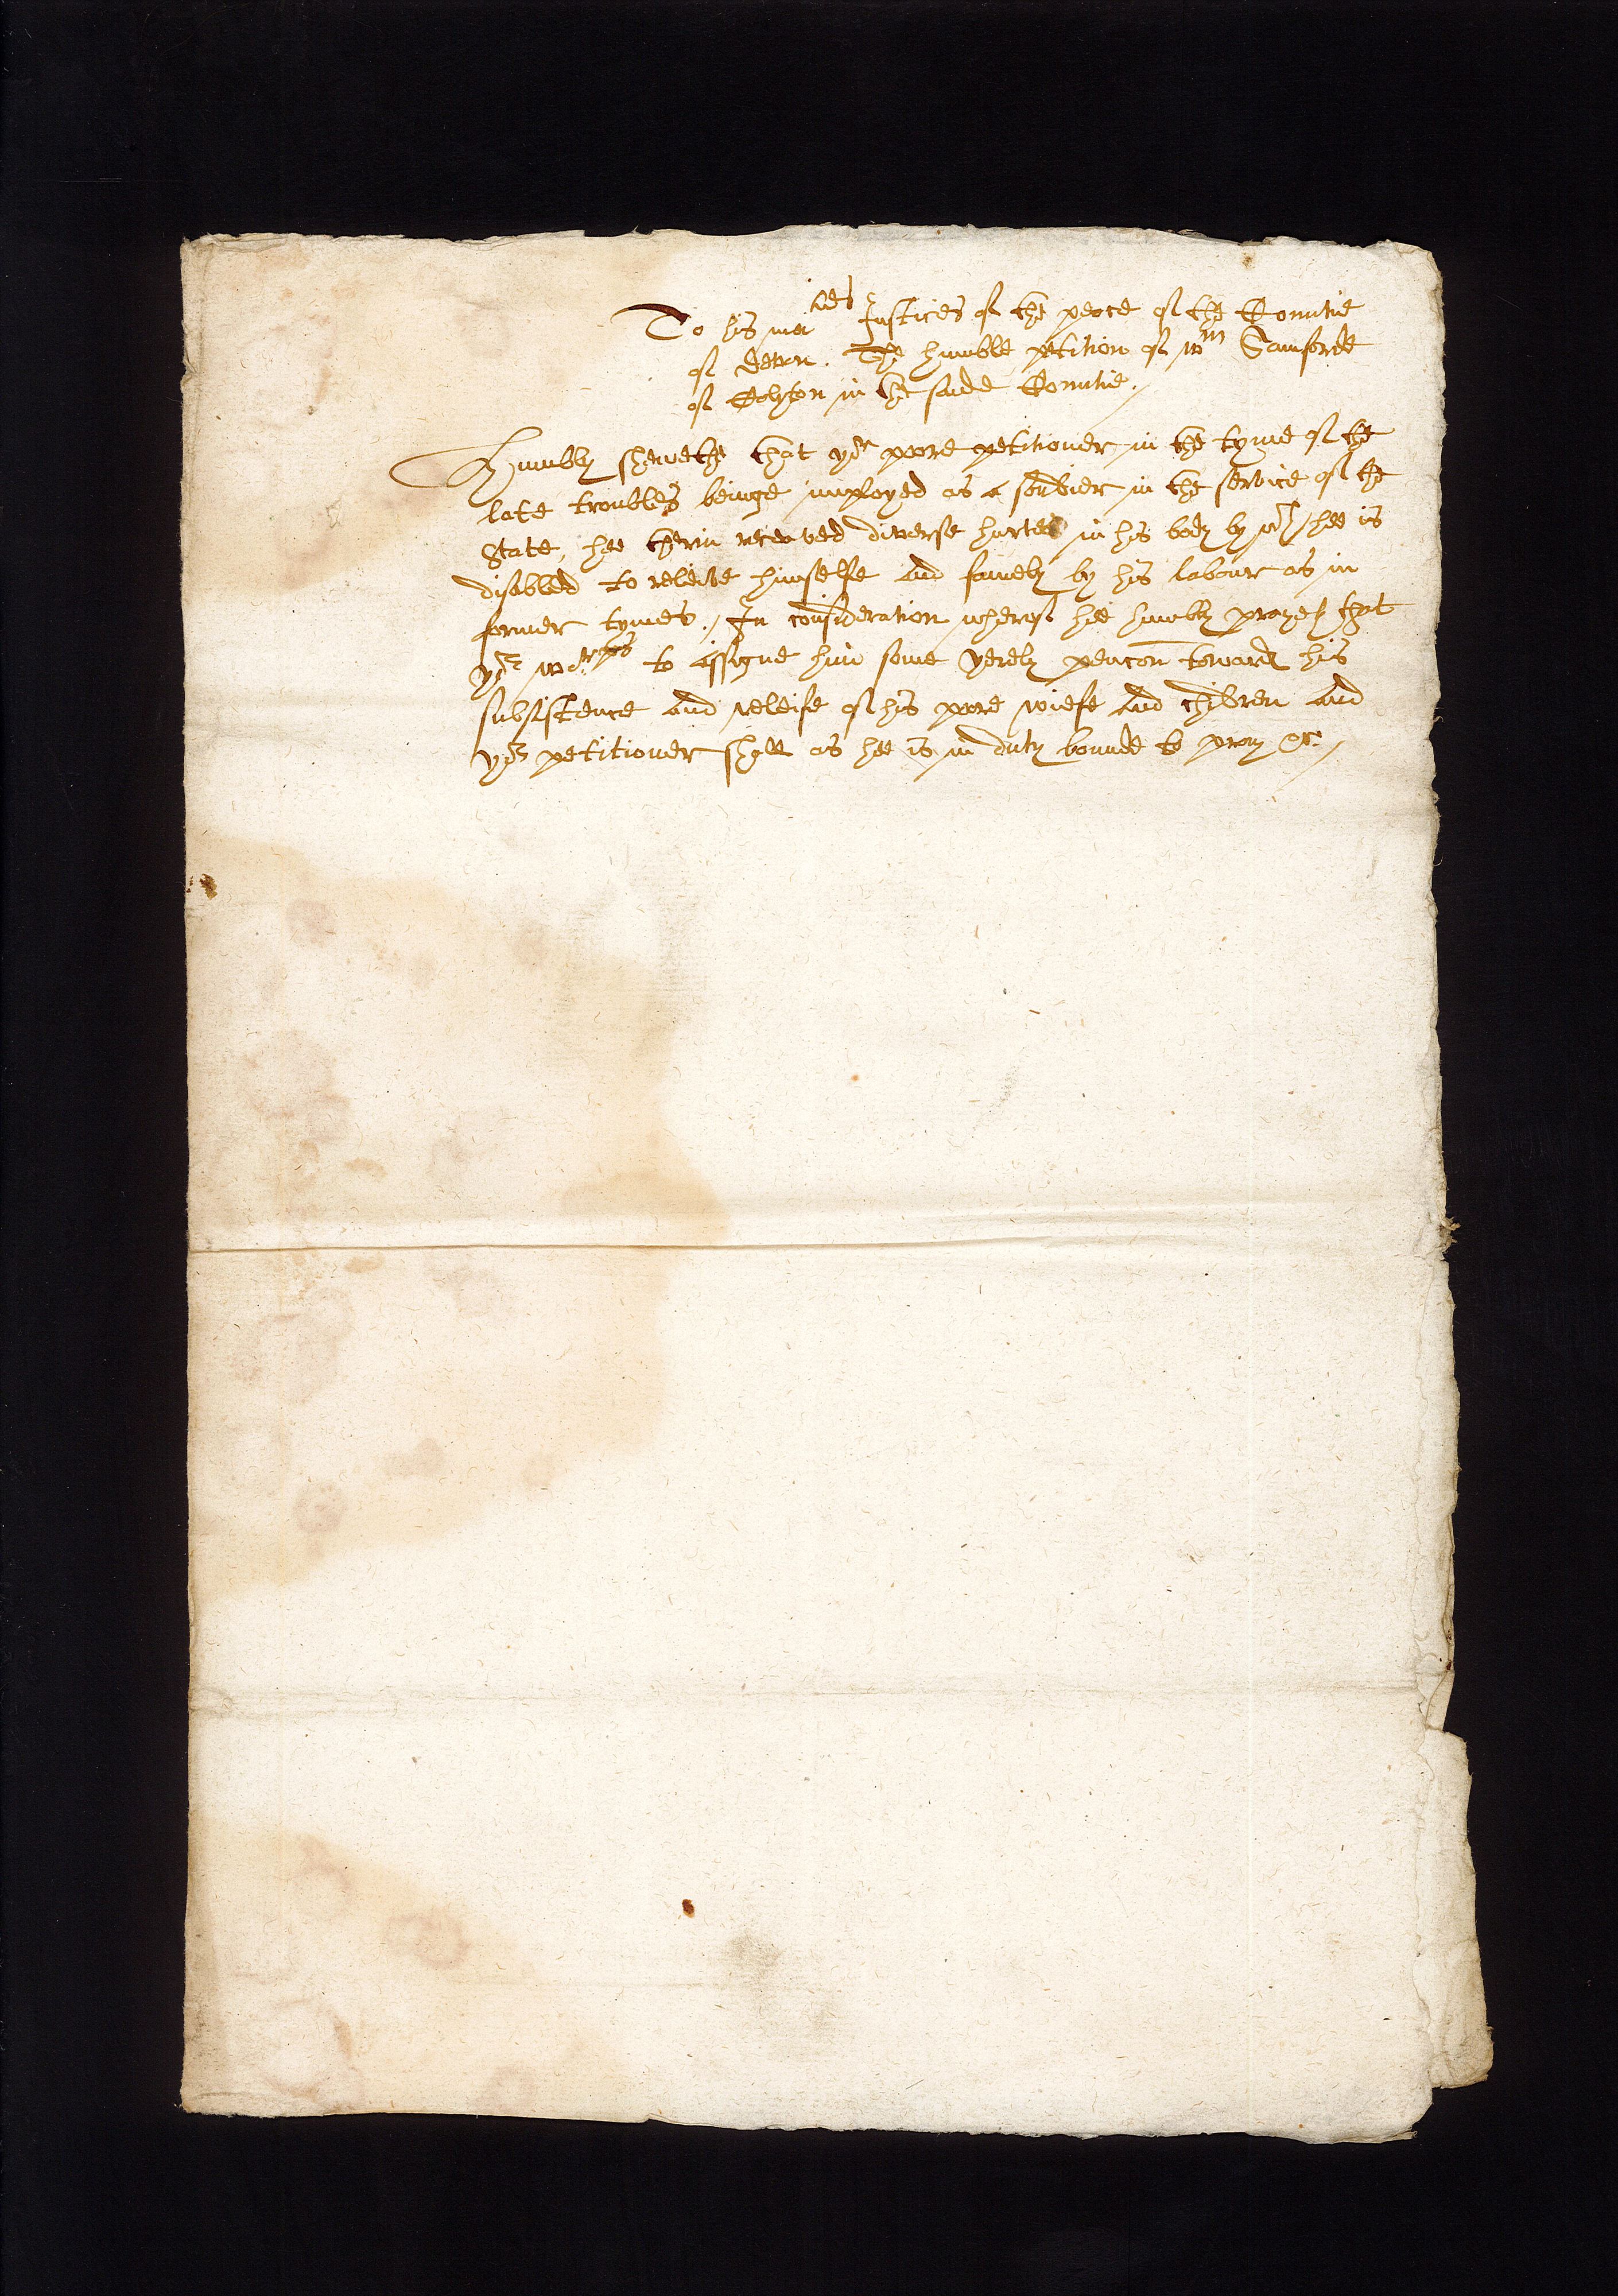 To his ma^ties Justices of the peace of the Countie
of devon. The humble petition of W^m Samforde
of Colyton in the saide Countie.
Humbly shewethe that yo^r poore petitioner in the tyme of the
late troubles beinge imployed as a souldier in the service of the
State, hee therin receaved diverse hurtes in his body by w^ch hee is
disabled to releive himselfe and famely by his labour as in
former tymes. In consideration wherof hee humbly prayeth that
yo^r wor^pps to assigne him some yerely pencon towards his
subsistence and releife of his poore wiefe and children and
yo^r petitioner shall as hee is in duty bounde to pray &c.